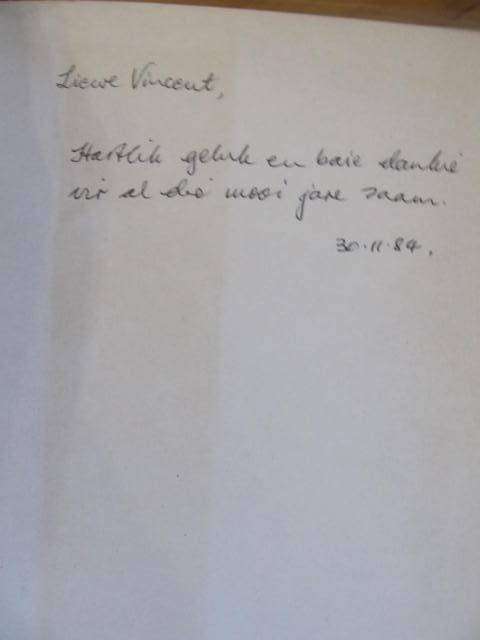 Liewe Vincent,
Hartlik geluk en baie dankie
vir al die mooi jare saam.
30.11.84.